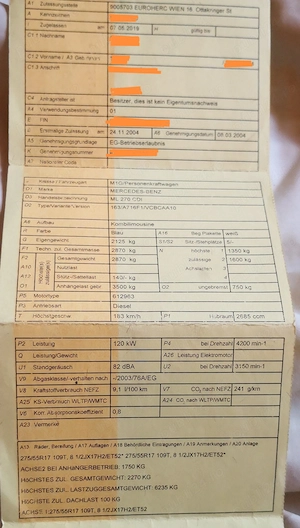 A1 Zulassungsstelle 9005703 EUROHERC WIEN 16, Ottakringer St
Kennzeichen
Zugelassen am 02.08.2019 gültig bis
C1.1 Nachname
C1.2 Vorname
C1.3 Anschrift
C4 Antragsteller ist Besitzer, dies ist kein Eigentumsnachweis
A4 Verwendungsbestimmung 01
E FIN
Erstmalige Zulassung 24.11.2004 A6 Genehmigungsdatum 08.03.2004
A5 Genehmigungsgrundlage EG-Betriebserlaubnis
K Genehmigungsnummer
A7 Nationaler Code
Klasse / Fahrzeugart M1G/Personenkraftwagen
D1 Marke MERCEDES-BENZ
D3 Handelsbezeichnung ML 270 CDI
D2 Type/Variante/Version
A8 Aufbau Kombilimousine
R Farbe Blau A16 Beg Plakette weiß
G Eigengewicht 2125 kg S1/S2 Sitz-/Stehplätze 5/-
Techn. zul. Gesamtmasse 2870 N Höchste 1 1350 kg
F2 Gesamtgewicht 2870 kg zulässige 2 1600 kg
A10 Nutzlast Achslasten 3
A13 Stütz-/Sattellast 140/- kg
O1 Anhängelast gebr. 3500 kg O2 ungebremst 750 kg
P5 Motortype 612963
P3 Antriebsart Diesel
T Höchstgeschw. 183 km/h P1 Hubraum 2685 ccm
P2 Leistung 120 kW P4 bei Drehzahl 4200 min-1
Q Leistung/Gewicht A26 Leistung Elektromotor
U1 Standgeräusch 82 dBA U2 bei Drehzahl 3150 min-1
V9 Abgasklasse/ verfallen nach -/2003/76A/EG
V8 Kraftstoffverbrauch NEFZ 9,1 l/100 km V7 CO₂ nach NEFZ 241 g/km
A25 KS-Verbrauch WLTP/WMTC A24 CO₂ nach WLTP/WMTC
V6 Korr. Absorptionskoeffizient 0,8
A23 Vermerke
A15 Räder, Bereifung / A17 Auflagen / A18 Behördliche Eintragungen / A19 Anmerkungen / A20 Anlage
275/55R17 109T, 8 1/2JX17H2/ET52*
ACHSE2 BEI ANHÄNGERBETRIEB: 1750 KG
HÖCHSTES ZUL. GESAMTGEWICHT: 2270 KG
HÖCHSTES ZUL. LASTZUGGESAMTGEWICHT: 6235 KG
HÖCHSTES ZUL. DACHLAST 100 KG
ACHSE 1:275/55R17 109T, 8 1/2JX17H2/ET52*